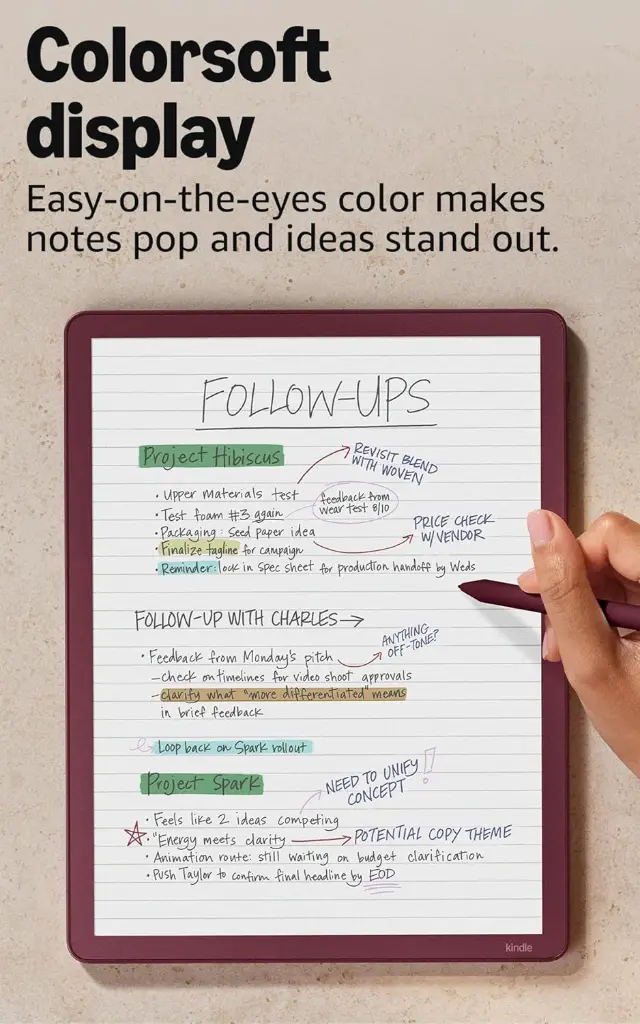 Colorsoft
display
Easy-on-the-eyes color makes
notes pop and ideas stand out.
FOLLOW-UPS
Project Hibiscus
REVISIT BLEND
WITH WOVEN
• Upper materials test
• Test foam #3 again
feedback from
wear test 8/10
• Packaging: Seed paper idea
PRICE CHECK
W/VENDOR
• Finalize tagline for campaign
• Reminder: lock in spec sheet for production handoff by Weds
FOLLOW-UP WITH CHARLES →
ANYTHING
OFF-TONE?
• Feedback from Monday's pitch
– check on timelines for video shoot approvals
– clarify what "more differentiated" means
in brief feedback
Loop back on Spark rollout
Project Spark
NEED TO UNIFY
CONCEPT!
• Feels like 2 ideas competing
• "Energy meets clarity → POTENTIAL COPY THEME
• Animation route: still waiting on budget clarification
• Push Taylor to confirm final headline by EOD
kindle